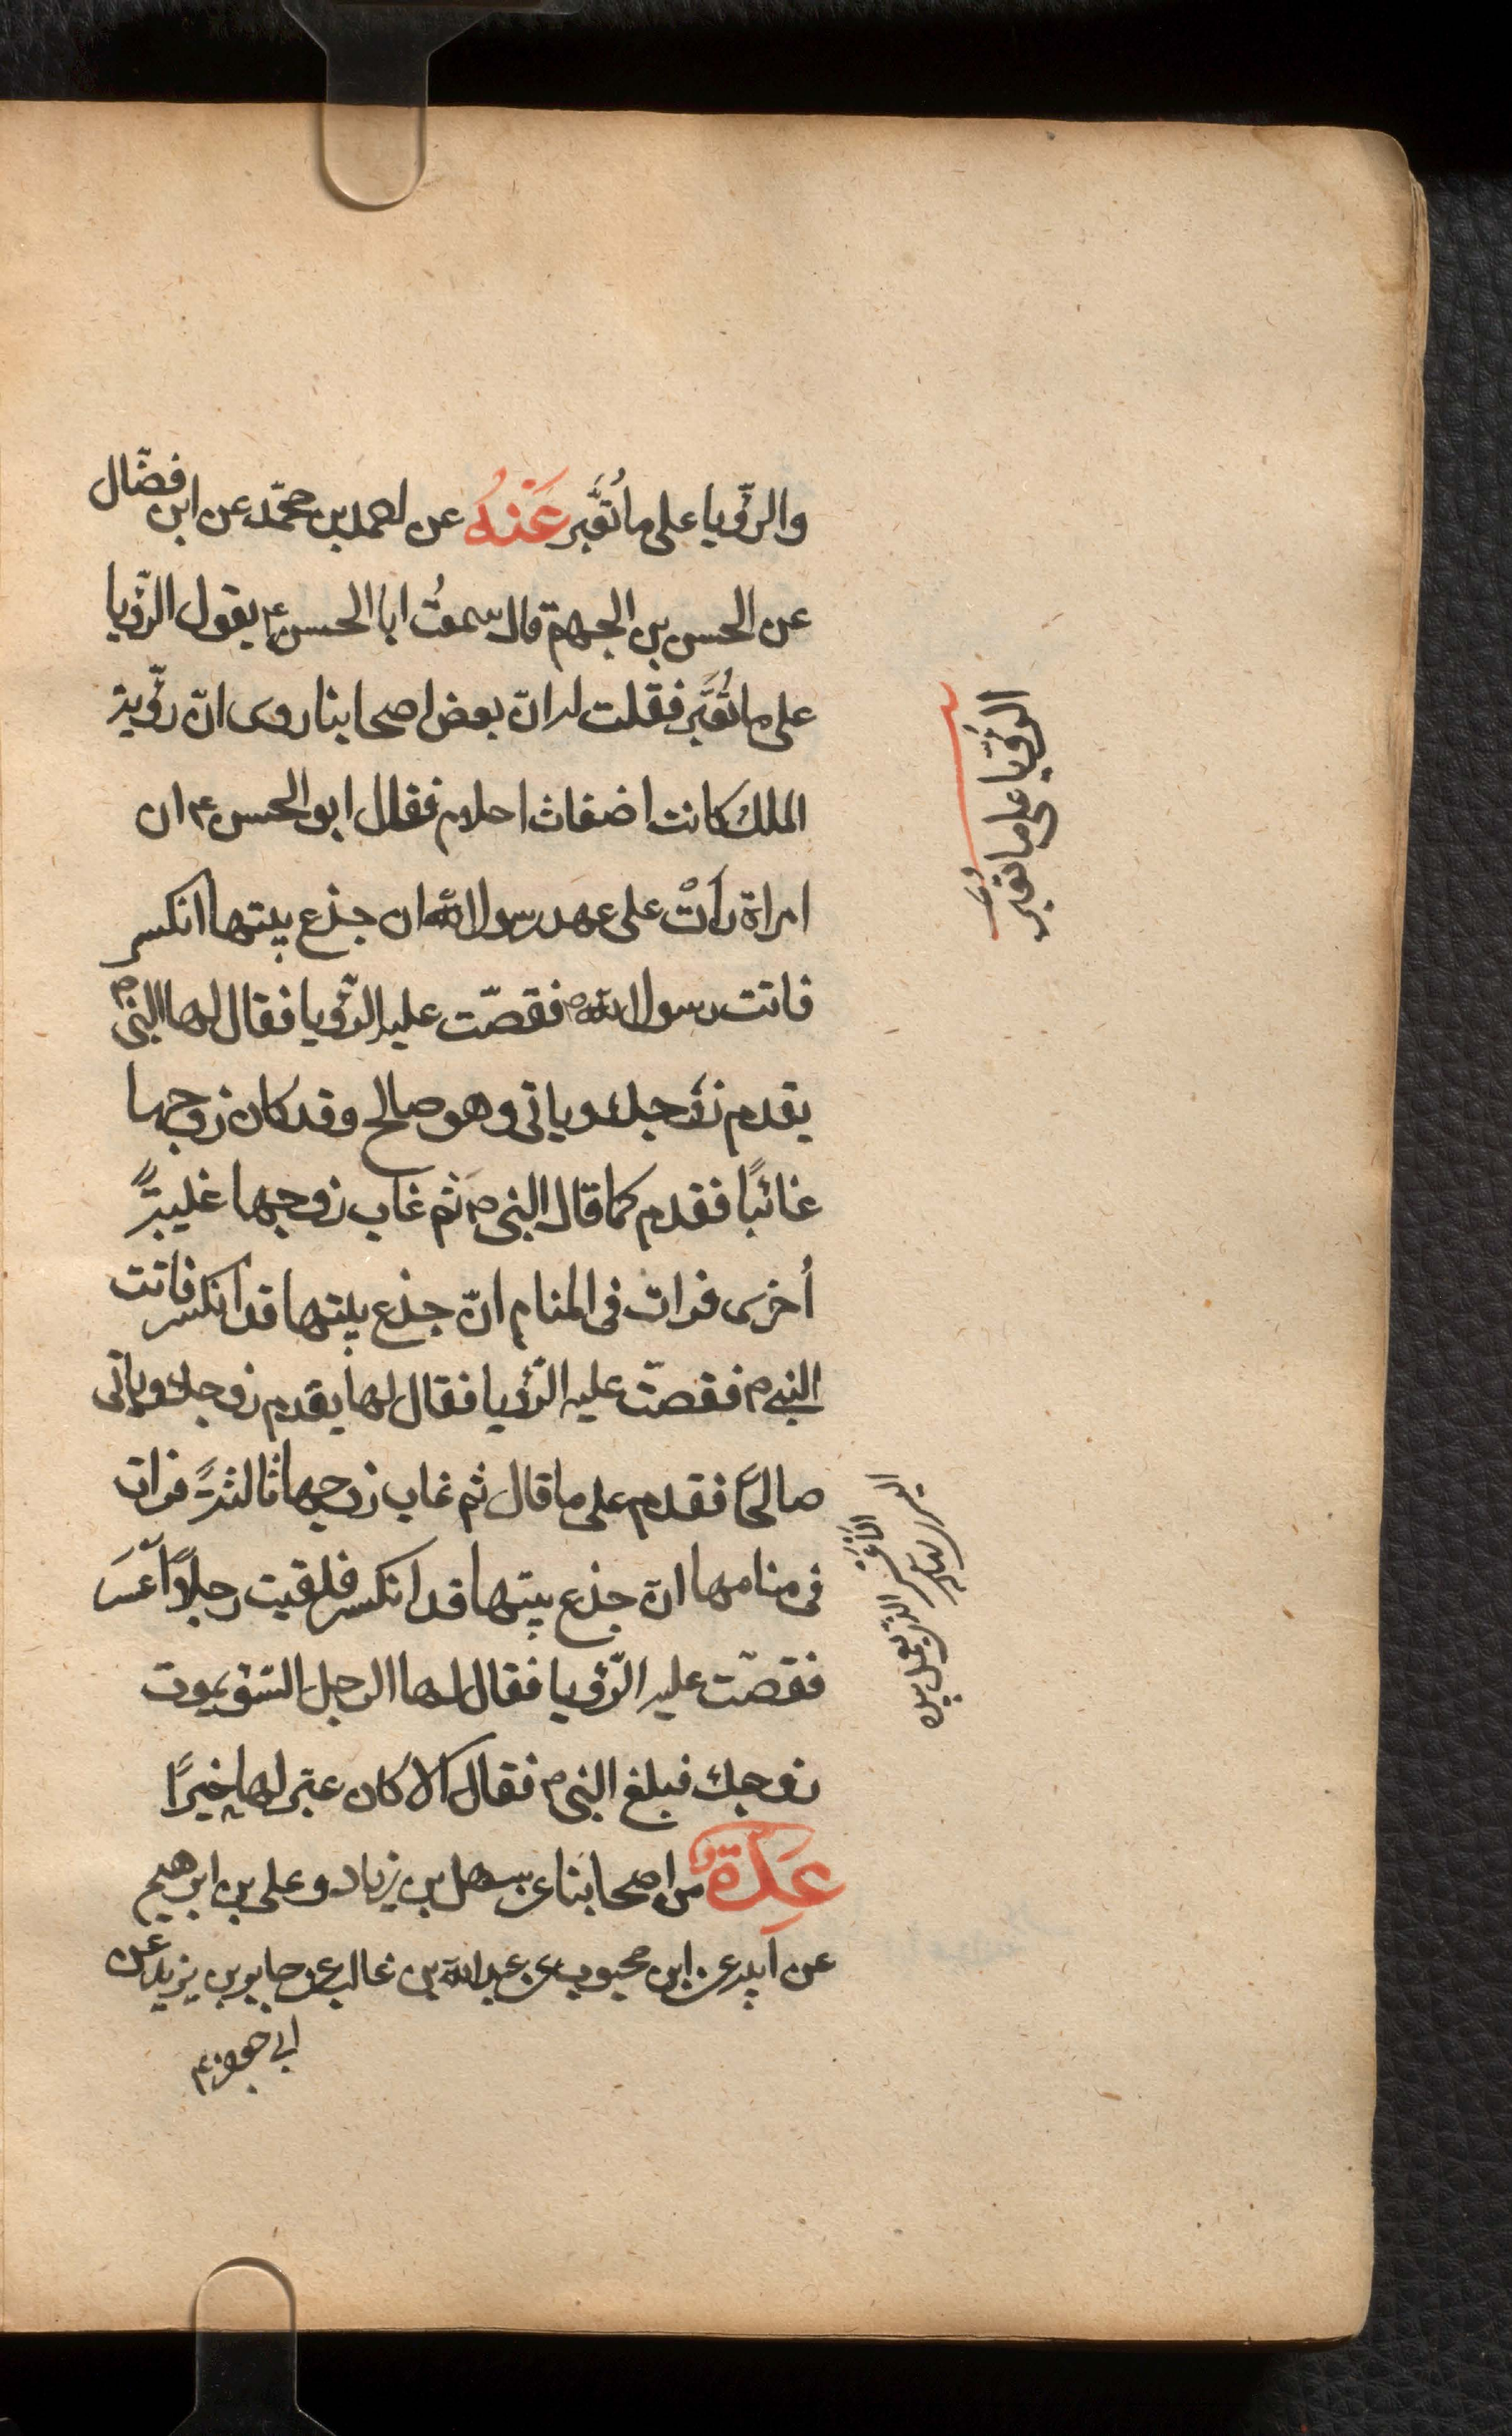 والرّؤيا على ما تُعَبَّر عَنْهُ عن احمد بن محمّد عن ابن فضّال
عن الحسن بن الجهم قال سمعتُ ابا الحسن ع يقول الرّؤيا
على ما تُعَبَّر فقلت له انّ بعض اصحابنا روى انّ رؤية
الملك كانت اضغاث احلام فقال ابو الحسن ع ان
امراة رأتْ على عهد رسول الله ان جذع بيتها انكسر
فاتت رسول الله ص فقصّت عليه الرّؤيا فقال لها النبي ص
يقدم زوجك وياتى وهو صالح وقد كان زوجها
غائبًا فقدم كما قال النبي ص ثم غاب زوجها غيبةً
أخرى فرات فى المنام انّ جذع بيتها قد انكسر فاتت
النبي ص فقصّت عليه الرّؤيا فقال لها يقدم زوجك وياتى
صالحًا فقدم على ما قال ثم غاب زوجها ثالثةً فرات
فى منامها انّ جذع بيتها قد انكسر فلقيت رجلًا أعسَر
فقصّت عليه الرّؤيا فقال لها الرجل السّوء يموت
زوجك فبلغ النبي ص فقال الا كان عبّر لها خيرًا
عِدّة من اصحابنا عن سهل بن زياد وعلى بن ابرهيم
عن ابيه عن ابن محبوب عن عبد الله بن غالب عن جابر بن يزيد عن
ابى جعفر ع
الرؤيا على ما تعبر
الذى يعمل بيده